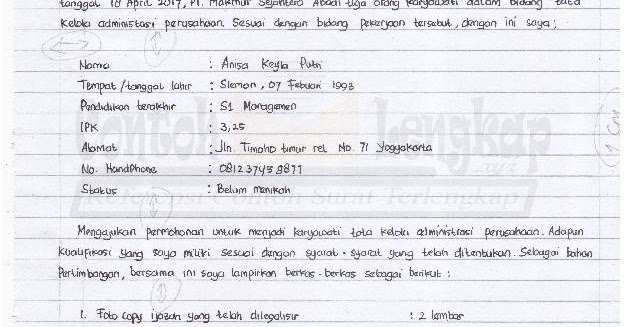 tanggal 18 April 2017, PT. Makmur Sejahtera Abadi tiga orang karyawati dalam bidang tata
kelola administasi perusahaan. Sesuai dengan bidang pekerjaan tersebut, dengan ini saya;
Nama : Anisa Keyla Putri
Tempat/tanggal lahir : Sleman, 07 Febuari 1993
Pendidikan terakhir : S1 Managemen
IPK : 3,25
Alamat : Jln. Timoho timur rel No. 71 Yogyakarta
No. HandPhone : 0812 3745 9877
Status : Belum menikah
Mengajukan permohonan untuk menjadi karyawati tata kelola administrasi perusahaan. Adapun
kualifikasi yang saya miliki sesuai dengan syarat-syarat yang telah ditentukan. Sebagai bahan
Pertimbangan, bersama ini saya lampirkan berkas-berkas sebagai berikut :
1. Foto copy ijazah yang telah dilegalisir : 2 lembar
1 cm
Contoh Lengkap
.xyz
Referensi Surat Terlengkap